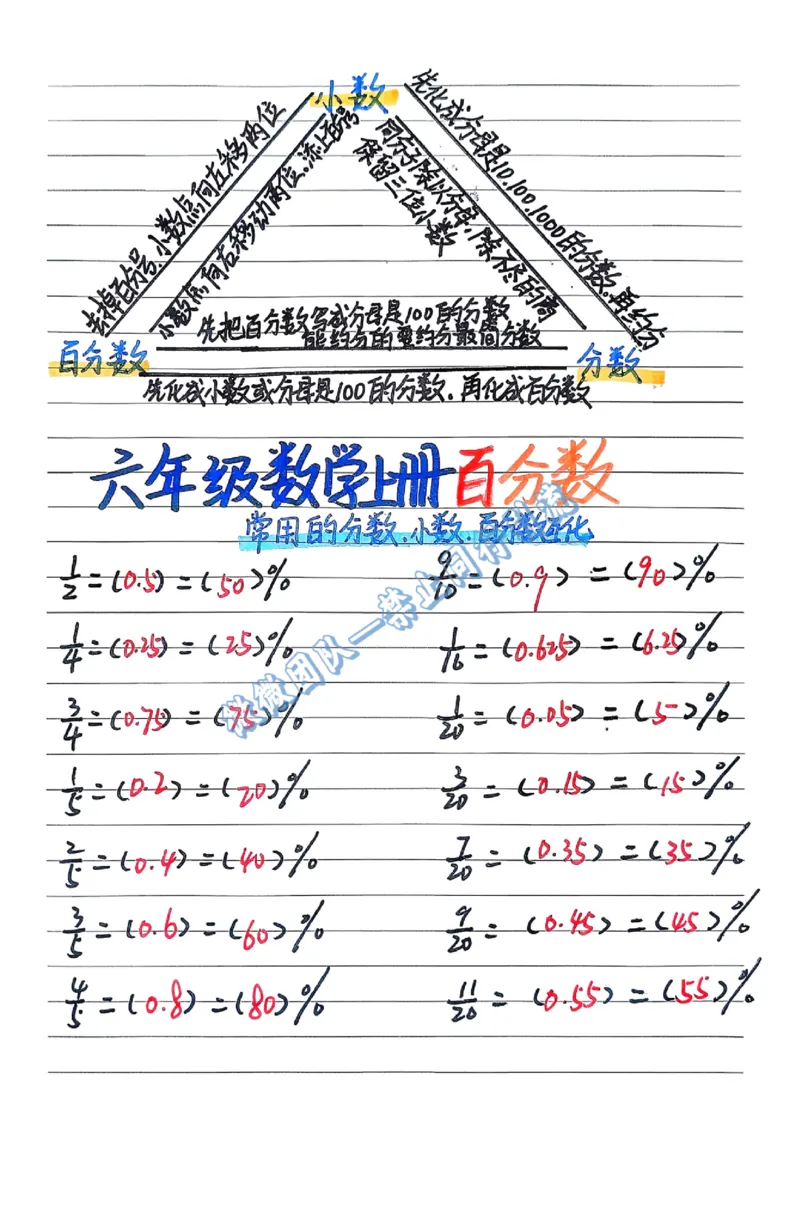 小数
去掉百分号,小数点向左移两位
小数点向右移动两位,添上百分号
用分子除以分母,除不尽的
保留三位小数
先化成分母是10.100.1000的分数.再约分
先把百分数写成分母是100的分数
能约分的要约分最简分数
百分数
分数
先化成小数或分母是100的分数.再化成百分数
六年级数学上册百分数
常用的分数.小数.百分数互化
1/2=(0.5)=(50)%
9/10=(0.9)=(90)%
1/4=(0.25)=(25)%
1/16=(0.625)=(6.25)%
3/4=(0.75)=(75)%
1/20=(0.05)=(5)%
1/5=(0.2)=(20)%
3/20=(0.15)=(15)%
2/5=(0.4)=(40)%
7/20=(0.35)=(35)%
3/5=(0.6)=(60)%
9/20=(0.45)=(45)%
4/5=(0.8)=(80)%
11/20=(0.55)=(55)%
微微团队—禁止同行